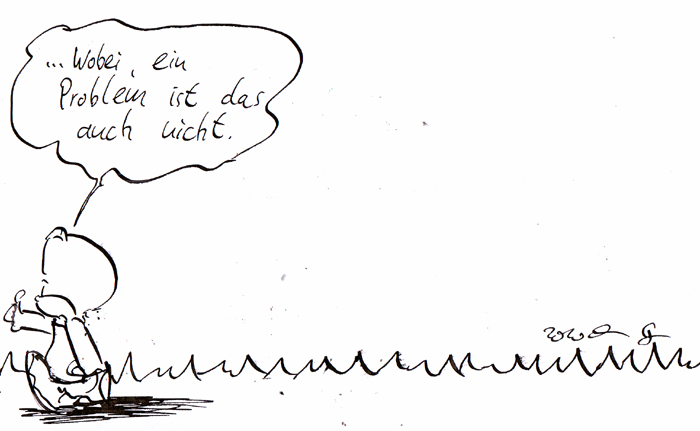 ... Wobei, ein
Problem ist das
auch nicht.